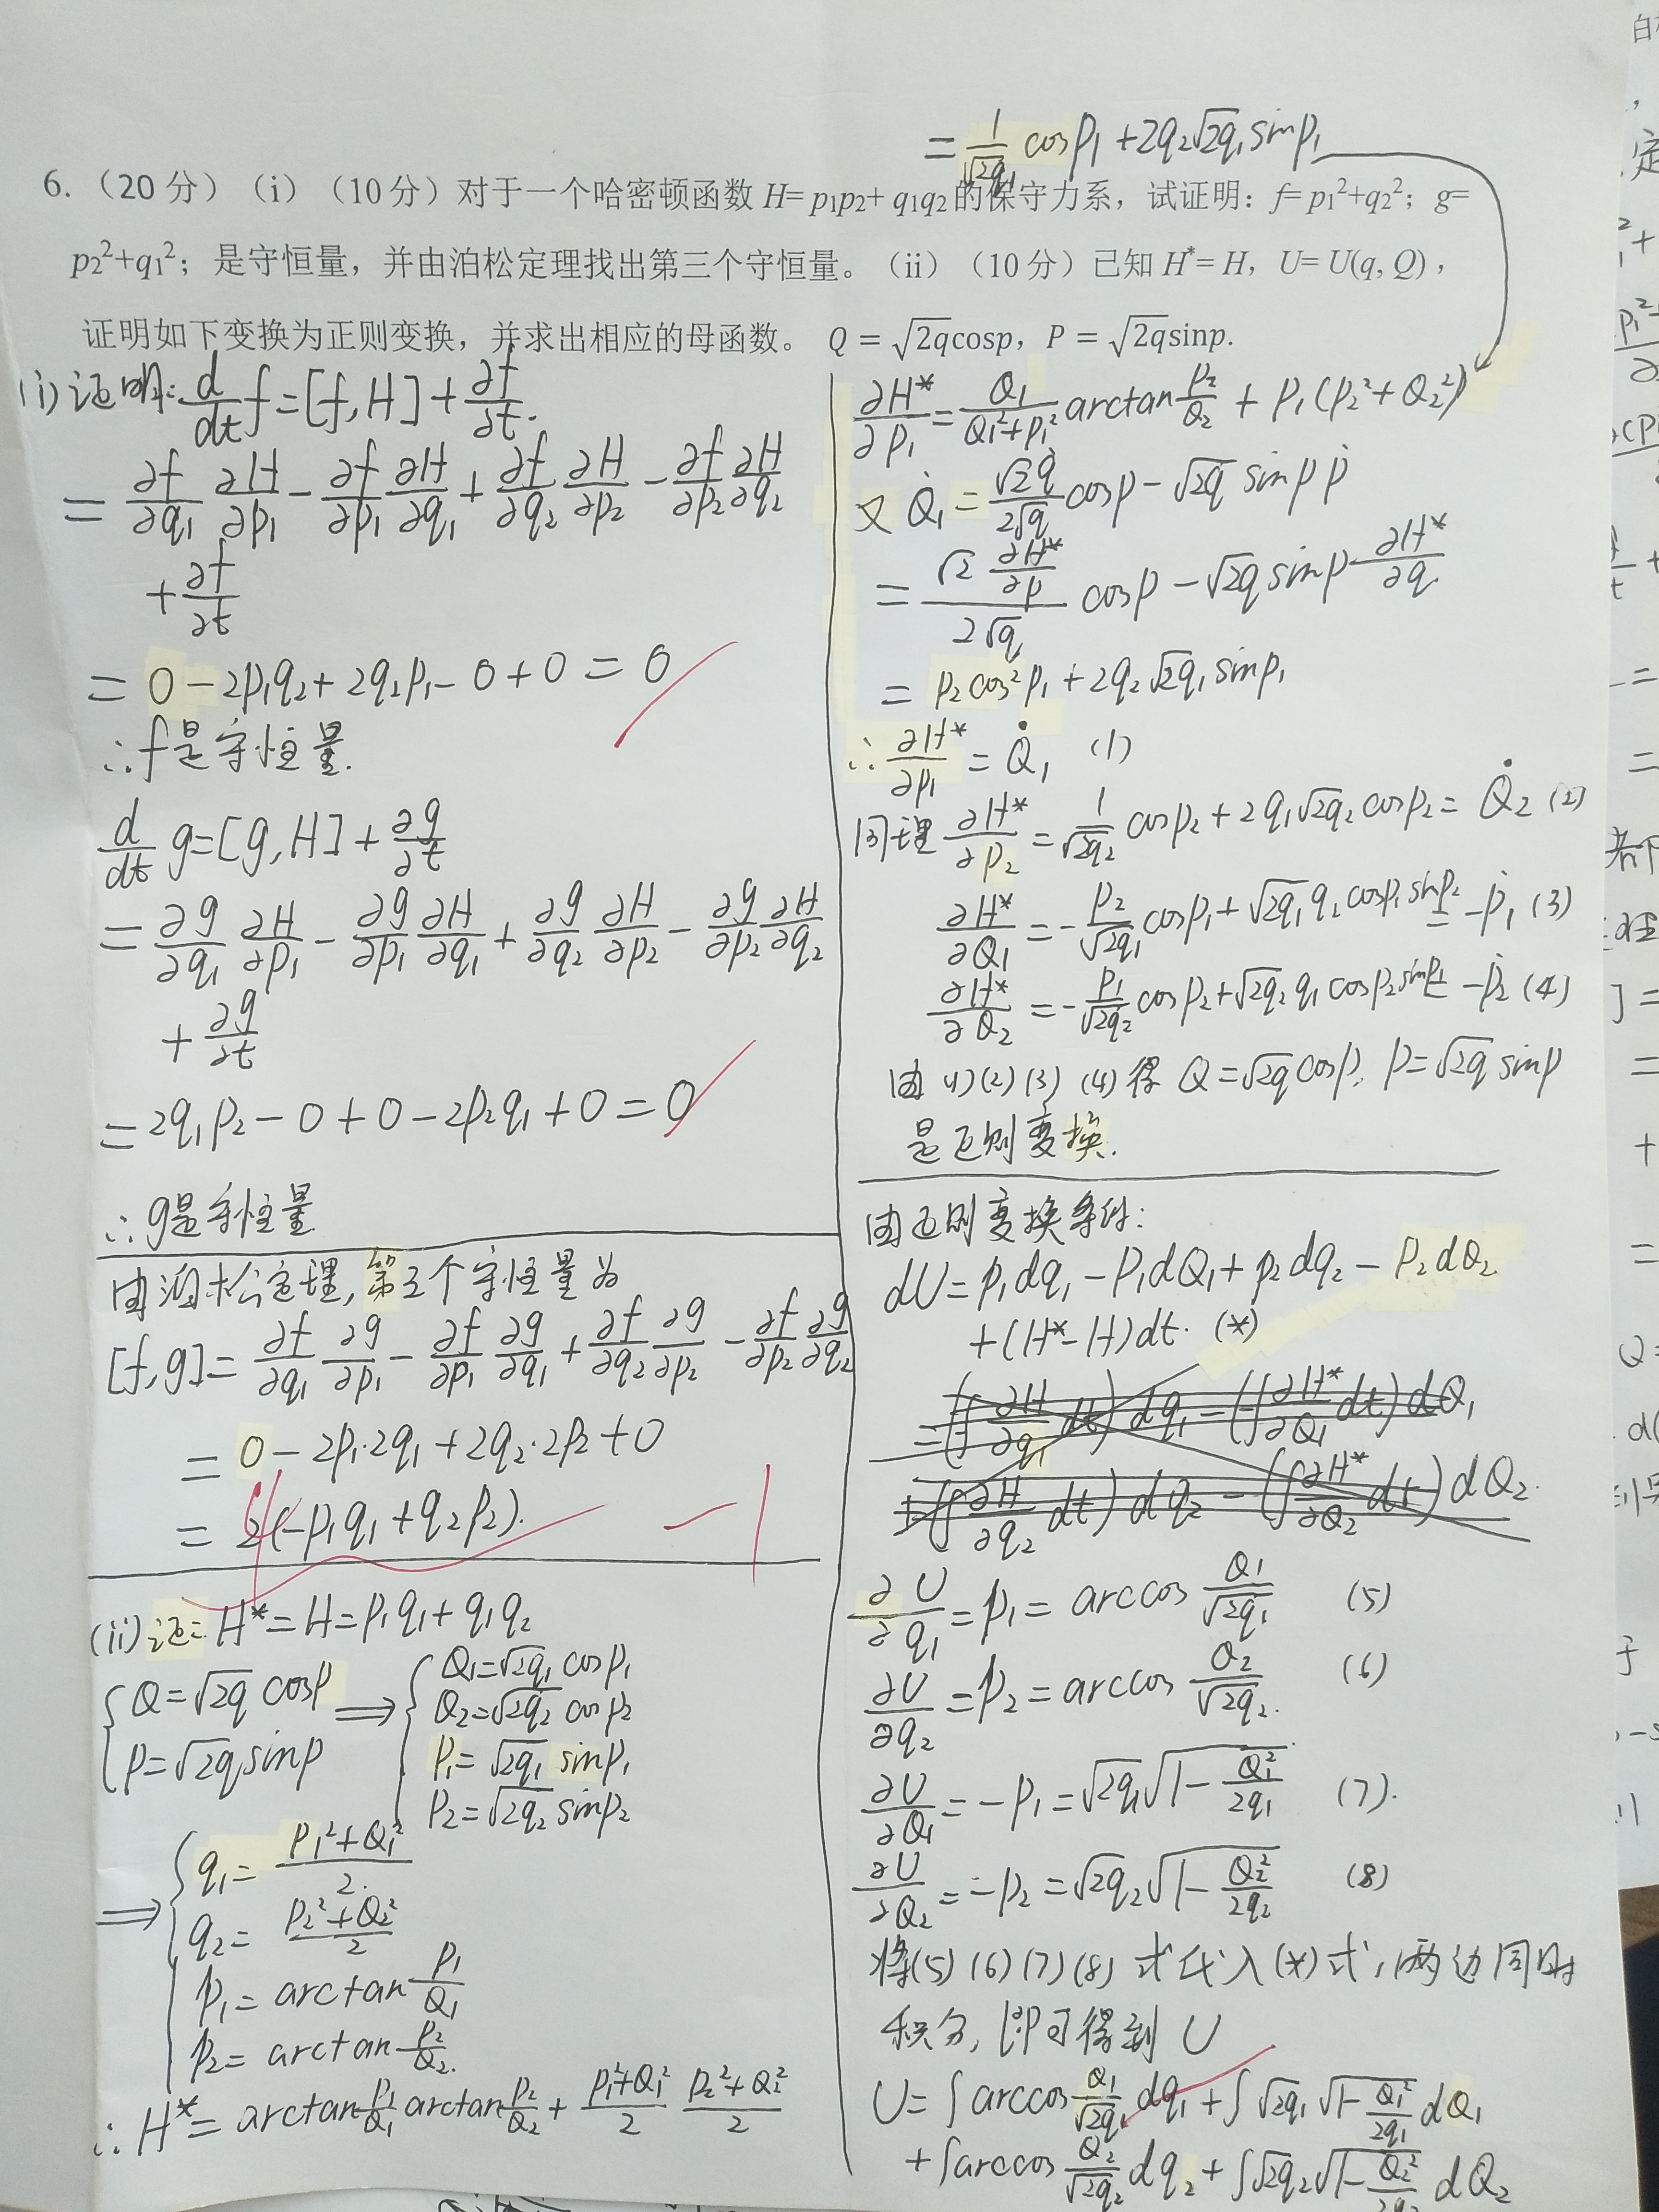 = 1/√(2q₁) cosp₁ + 2q₂√(2q₁) sinp₁
6.（20 分）（i）（10 分）对于一个哈密顿函数 H= p₁p₂+ q₁q₂的保守力系，试证明：f= p₁²+q₂²；g=
p₂²+q₁²；是守恒量，并由泊松定理找出第三个守恒量。（ii）（10 分）已知 H*= H，U= U(q, Q)，
证明如下变换为正则变换，并求出相应的母函数。 Q = √(2q)cosp，P = √(2q)sinp.
(i) 证明: d/dt f = [f, H] + ∂f/∂t.
= ∂f/∂q₁ ∂H/∂p₁ - ∂f/∂p₁ ∂H/∂q₁ + ∂f/∂q₂ ∂H/∂p₂ - ∂f/∂p₂ ∂H/∂q₂
+ ∂f/∂t
= 0 - 2p₁q₂ + 2q₂p₁ - 0 + 0 = 0
∴ f是守恒量.
d/dt g = [g, H] + ∂g/∂t
= ∂g/∂q₁ ∂H/∂p₁ - ∂g/∂p₁ ∂H/∂q₁ + ∂g/∂q₂ ∂H/∂p₂ - ∂g/∂p₂ ∂H/∂q₂
+ ∂g/∂t
= 2q₁p₂ - 0 + 0 - 2p₂q₁ + 0 = 0
∴ g是守恒量
由泊松定理, 第三个守恒量为
[f, g] = ∂f/∂q₁ ∂g/∂p₁ - ∂f/∂p₁ ∂g/∂q₁ + ∂f/∂q₂ ∂g/∂p₂ - ∂f/∂p₂ ∂g/∂q₂
= 0 - 2p₁·2q₁ + 2q₂·2p₂ + 0
= 2(-p₁q₁ + q₂p₂).
-1
(ii) 证: H* = H = p₁q₁ + q₁q₂
{ Q = √(2q) cosp
P = √(2q) sinp
⟹ { Q₁ = √(2q₁) cosp₁
Q₂ = √(2q₂) cosp₂
P₁ = √(2q₁) sinp₁
P₂ = √(2q₂) sinp₂
⟹ { q₁ = (P₁² + Q₁²)/2.
q₂ = (P₂² + Q₂²)/2
p₁ = arctan P₁/Q₁
p₂ = arctan P₂/Q₂.
∴ H* = arctan P₁/Q₁ arctan P₂/Q₂ + (P₁² + Q₁²)/2 (P₂² + Q₂²)/2
∂H*/∂P₁ = Q₁/(Q₁² + P₁²) arctan P₂/Q₂ + P₁(P₂² + Q₂²)
又 Q̇₁ = √2 q̇/(2√q) cosp - √(2q) sinp ṗ
= (√2 ∂H*/∂p)/(2√q) cosp - √(2q) sinp ∂H*/∂q
= p₂ cos² p₁ + 2q₂√(2q₁) sinp₁
∴ ∂H*/∂P₁ = Q̇₁ (1)
同理 ∂H*/∂P₂ = 1/√(2q₂) cosp₂ + 2q₁√(2q₂) cosp₂ = Q̇₂ (2)
∂H*/∂Q₁ = - p₂/√(2q₁) cosp₁ + √(2q₁) q₂ cosp₁ sinp₂ = -Ṗ₁ (3)
∂H*/∂Q₂ = - p₁/√(2q₂) cosp₂ + √(2q₂) q₁ cosp₂ sinp₁ = -Ṗ₂ (4)
由 (1)(2)(3)(4) 得 Q = √(2q) cosp, P = √(2q) sinp
是正则变换.
由正则变换条件:
dU = p₁dq₁ - P₁dQ₁ + p₂dq₂ - P₂dQ₂
+ (H* - H)dt. (*)
= (∫∂H/∂q₁ dt)dq₁ - (∫∂H*/∂Q₁ dt)dQ₁
+ (∫∂H/∂q₂ dt)dq₂ - (∫∂H*/∂Q₂ dt)dQ₂.
∂U/∂q₁ = p₁ = arccos Q₁/√(2q₁) (5)
∂U/∂q₂ = p₂ = arccos Q₂/√(2q₂). (6)
∂U/∂Q₁ = -P₁ = √(2q₁) √(1 - Q₁²/2q₁) (7).
∂U/∂Q₂ = -P₂ = √(2q₂) √(1 - Q₂²/2q₂) (8)
将(5)(6)(7)(8)式代入(*)式, 两边同时
积分, 即可得到 U
U = ∫arccos Q₁/√(2q₁) dq₁ + ∫√(2q₁) √(1 - Q₁²/2q₁) dQ₁
+ ∫arccos Q₂/√(2q₂) dq₂ + ∫√(2q₂) √(1 - Q₂²/2q₂) dQ₂